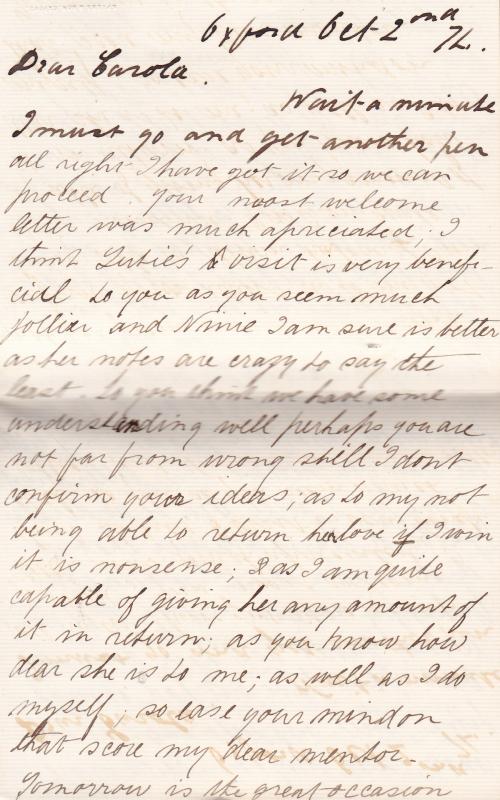 Oxford Oct 2nd
/72.
Dear Carola.
Wait a minute
I must go and get another pen
all right I have got it so we can
proceed. Your most welcome
letter was much apriciated; I
think visit is very benefi-
cial to you as you seem much
jollier and Ninie I am sure is better
as her notes are crazy to say the
least. So you think we have some
understanding well perhaps you are
not far from wrong still I dont
confirm your ideas; as to my not
being able to return her love if I win
it is nonsense; as I am quite
capable of giving her any amount of
it in return; as you know how
dear she is to me; as well as I do
myself; so ease your mind on
that score my dear mentor.
Tomorrow is the great occasion